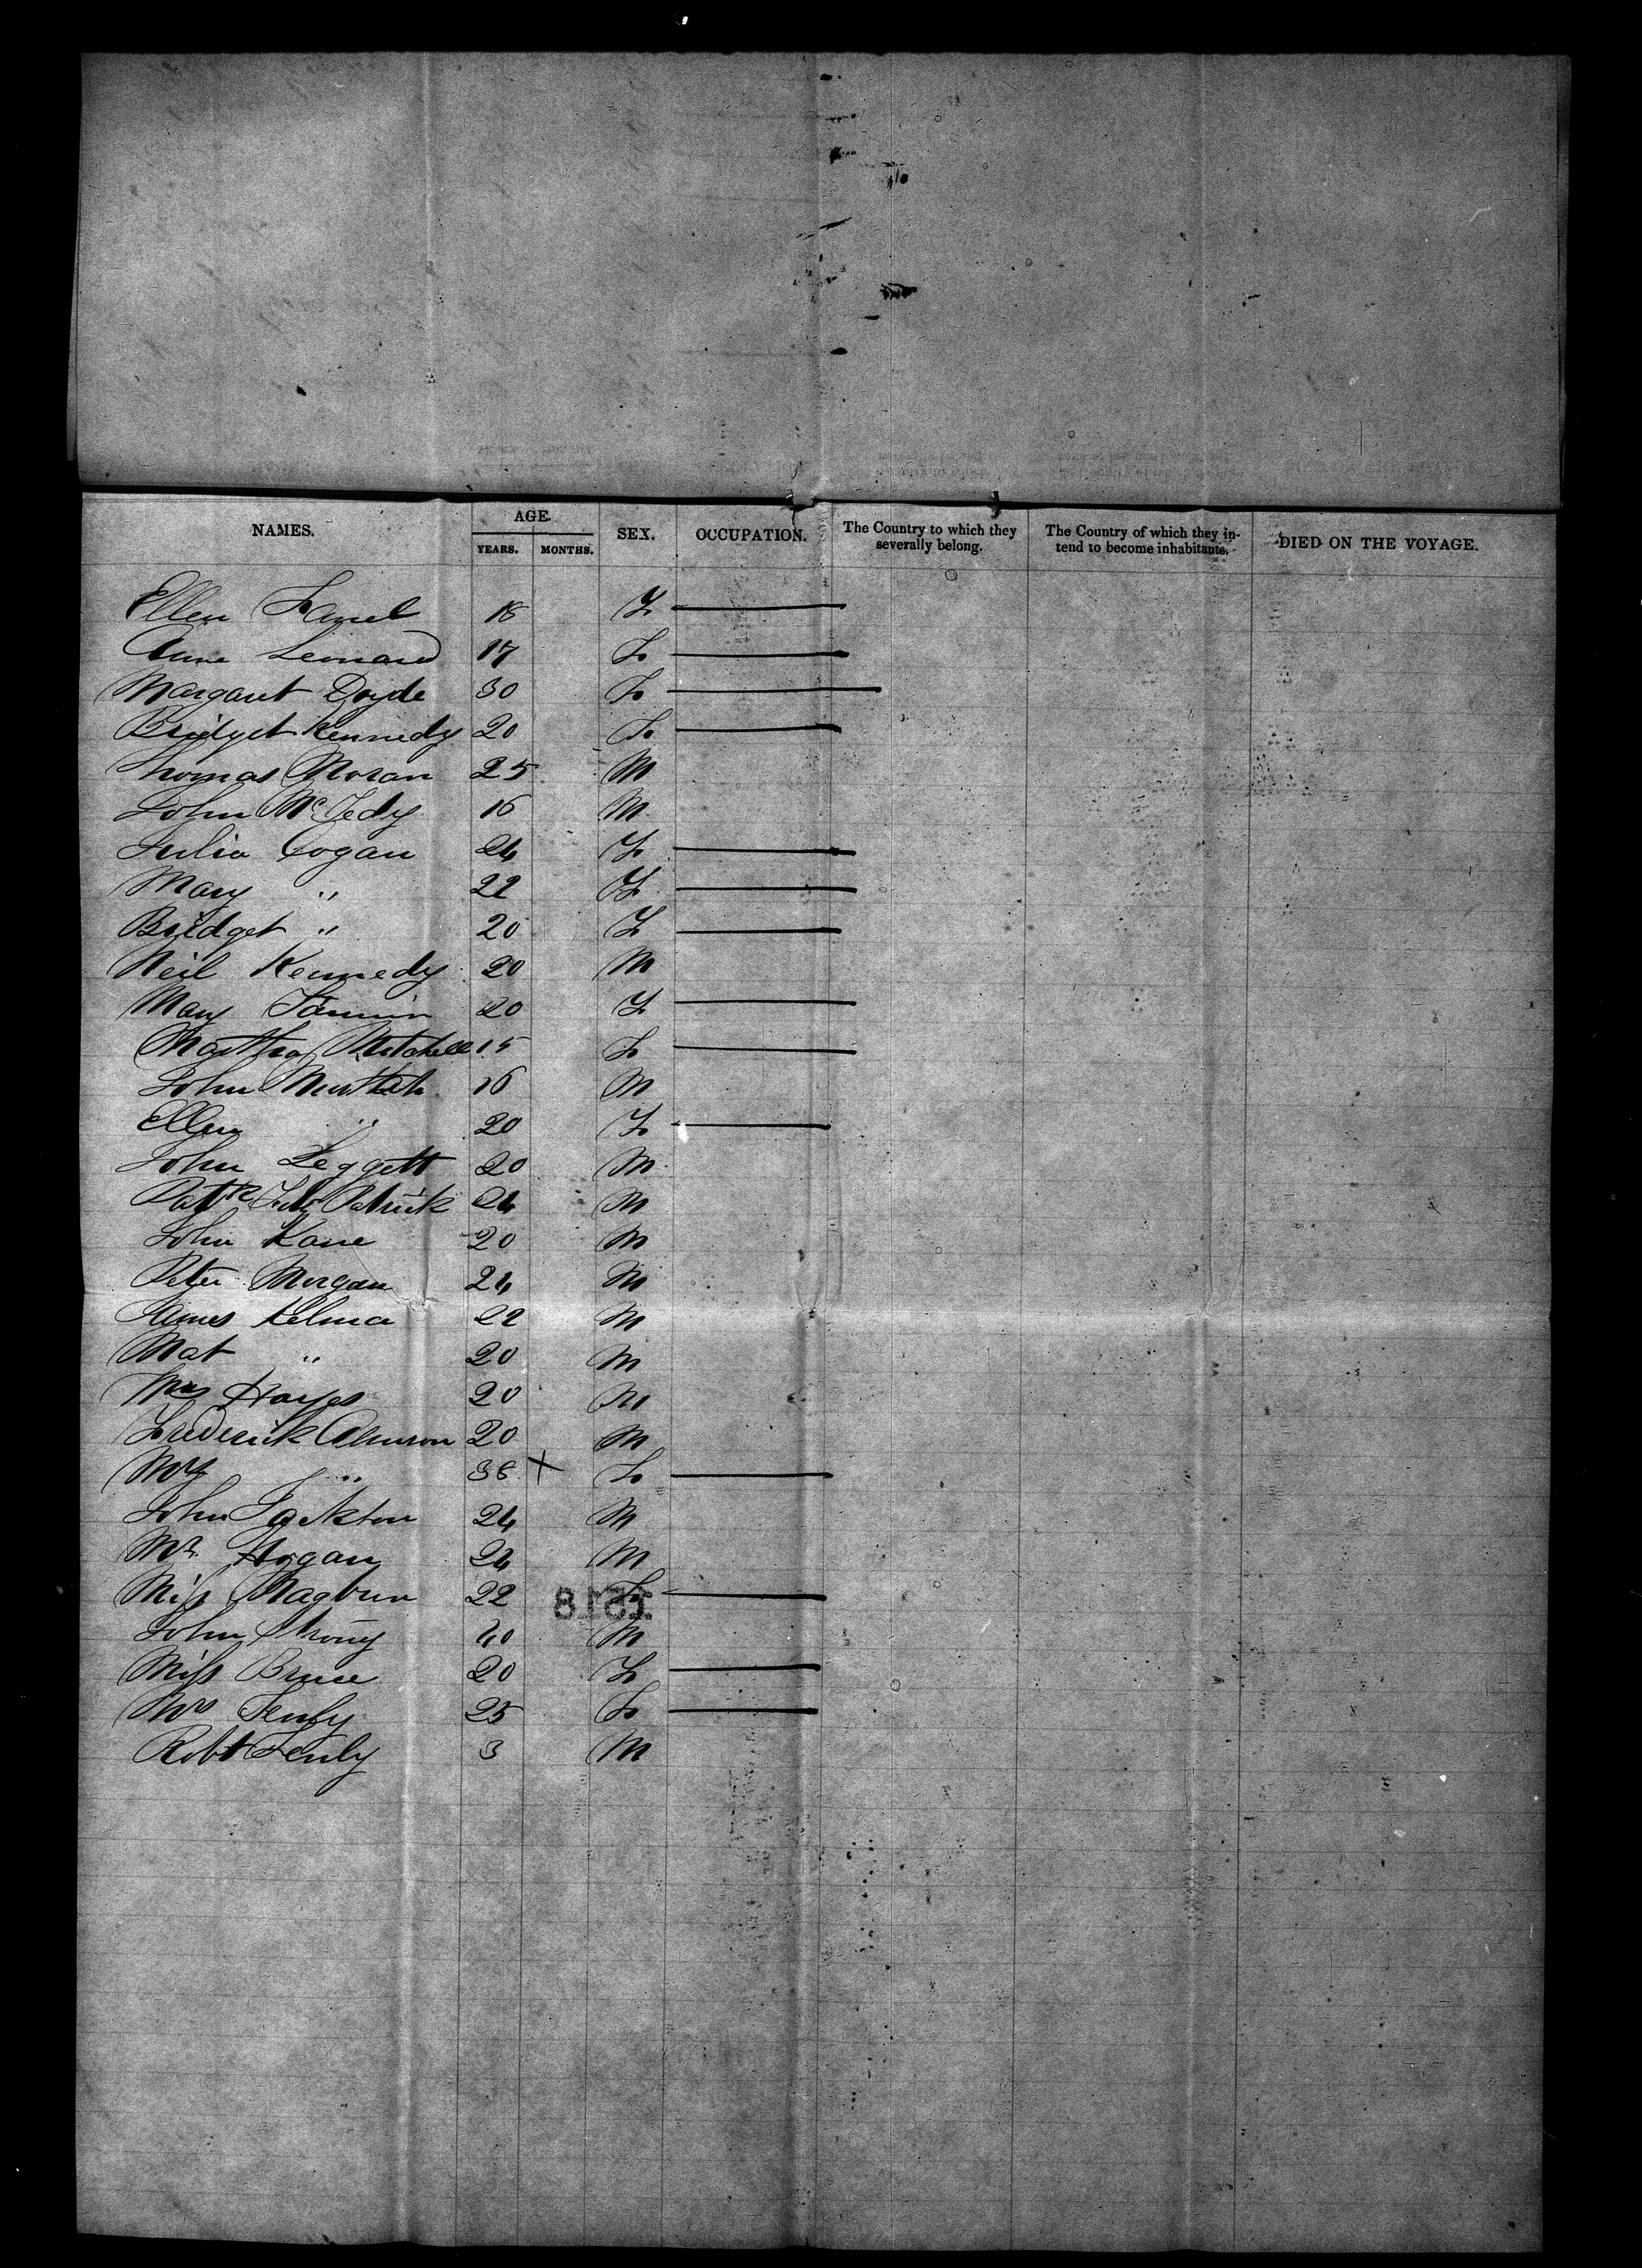 NAMES. AGE. SEX. OCCUPATION. The Country to which they severally belong. The Country of which they intend to become inhabitants. DIED ON THE VOYAGE.
YEARS. MONTHS.
Ellen 18 F
Anne Leonard 17 F
Margaret Doyle 30 F
Bridget Kennedy 20 F
Thomas Moran 25 M
John Mc 16 M
Julia Cogan 24 F
Mary " 22 F
Bridget " 20 F
Neil Kennedy 20 M
Mary 20 F
Martha Mitchell 15 F
John 16 M
Ellen " 20 F
John Leggett 20 M
Patk Fitz Patrick 24 M
John Kane 20 M
Peter Morgan 24 M
James 22 M
Mat " 20 M
Hayes 20 M
Frederick 20 M
Mrs " 36 + F
John 24 M
Mr. Hogan 24 M
Miss 22 F
John Strong 40 M
Miss Bruce 20 F
Mrs 25 F
Robt 3 M